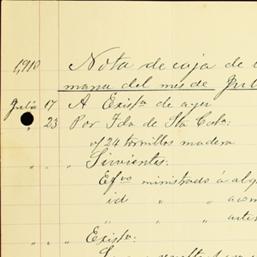 1910 Nota de caja de
mana del mes de Jul
Julio 17 A Exista de ayer
" 23 Por Fda. de Sta Cola:
24 tornillos madera
" " Sirvientes:
Efvo ministrado á alg
id " " acom
" " "
" " Exista: